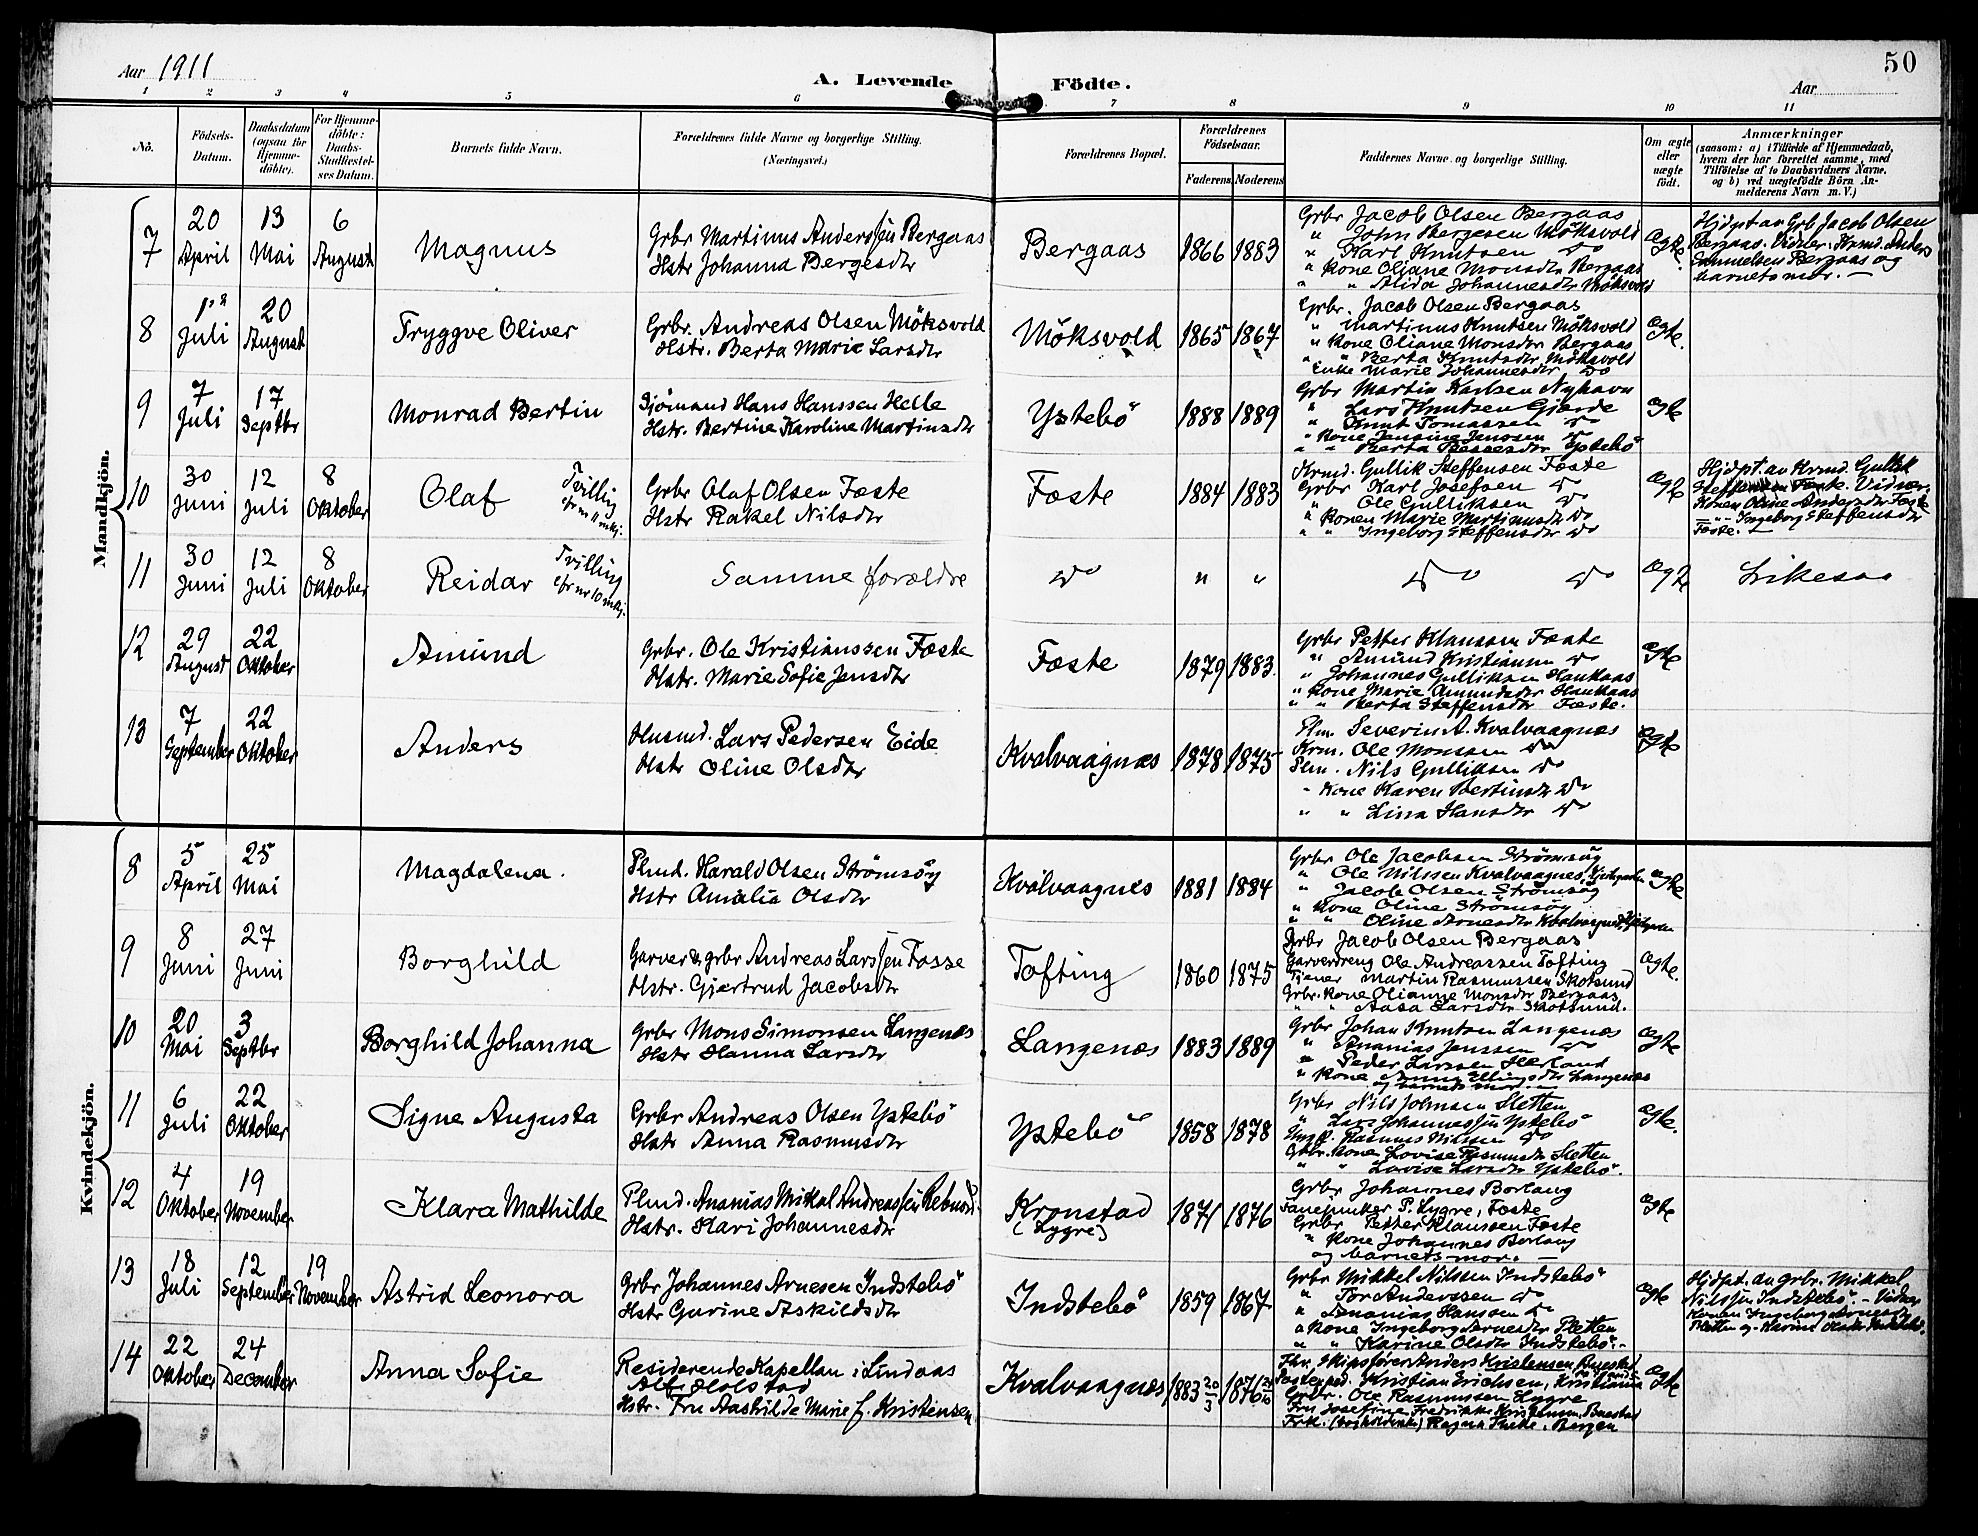 50
Aar 1911
A. Levende Födte.
Aar
1 2 3 4 5 6 7 8 9 10 11
No.
Födsels-Datum.
Daabsdatum (ogsaa for Hjemme-döbte).
For Hjemme-döbte: Daabs-Stadfæstel-ses Datum.
Barnets fulde Navn.
Forældrenes fulde Navne og borgerlige Stilling.
(Næringsvei.)
Forældrenes Bopæl.
Forældrenes Födselsaar.
Faderens Moderens
Faddernes Navne og borgerlige Stilling.
Om ægte eller uægte födt.
Anmærkninger
(saasom: a) i Tilfælde af Hjemmedaab,
hvem der har forrettet samme, med
Tilföielse af to Daabsvidners Navne.
og b) ved uægtefödte Börn An-
melderens Navn m. V.)
Mandkjön.
7
20 April
13 Mai
6 August
Magnus
Grbr Martinus Anderssön Bergaas
Hstr Johanna Bergesdtr
Bergaas
1866 1883
Grbr Jacob Olsen Bergaas
" John Bergesen Möksvold
" Karl Knutsen do
" Kone Oliane Monsdtr Bergaas
" " Alida Johannesdtr Möksvold
Ægte.
Hjdpt av Grb Jacob Olsen
Bergaas. Vidner: Krmd. Anders
Samuelsen Bergaas og
barnets mor. —
8
1ste Juli
20 August
Tryggve Oliver
Grbr. Andreas Olsen Möksvold
Hstr. Berta Marie Larsdtr
Möksvold
1865 1867
Grbr. Jacob Olsen Bergaas
" Martinus Knutsen Möksvold
" Kone Oliane Monsdtr Bergaas
" " Berta Knutsdtr Möksvold
Enke Marie Johannesdtr do
Ægte.
9
7 Juli
17 Septbr
Monrad Bertin
Sjömand Hans Hanssen Helle
Hstr. Bertine Karoline Martinsdtr
Ystebö
1888 1889
Grbr Martin Karlsen Nyhavn
" Lars Knutsen Gjerde
" Knut Tomassen do
" Kone Jensine Jenssen do
" " Berta Bessesdtr Ystebö
Ægte
10
30 Juni
12 Juli
8 Oktober
Olaf
Tvilling
cfr nr 11 mkj.
Grbr Olaf Olsen Fæste
Hstr Rakel Nilsdtr
Fæste
1884 1883
Krmd. Gullik Steffensen Fæste
Grbr Karl Josefsen do
" Ole Gulliksen do
" Konen Marie Martinusdtr do
" " Ingeborg Steffensdtr do
Ægte
Hjdpt. av Krmd. Gullik
Steffensen Fæste. Vidner:
Konen Oline Andersdtr Fæste
— " — Ingeborg Steffensdtr
Fæste. —
11
30 Juni
12 Juli
8 Oktober
Reidar
Tvilling
cfr nr 10 mkj.
Samme forældre
do
" "
do do
Ægte
Likesaa
12
29 August
22 Oktober
Amund
Grbr. Ole Kristianssen Fæste
Hstr. Marie Sofie Jensdtr
Fæste
1879 1883.
Grbr Petter Klaussen Fæste
" Amund Kristiansen do
" Johannes Gulliksen Haukaas
" Kone Marie Amundsdtr Haukaas
" " Berta Steffensdtr Fæste.
Ægte
13
7 September
22 Oktober
Anders
Husmd. Lars Pedersen Eide
Hstr Oline Olsdtr
Kvalvaagnæs
1878 1875
Plm. Severin A. Kvalvaagnæs
Krm. Ole Monssen do
Plm. Nils Gulliksen do
" Kone Karen Bertinsdtr do
" " Lina Hansdtr do
Ægte
Kvindekjön.
8
5 April
25 Mai
Magdalena.
Plmd. Harald Olsen Strömsöy
Hstr Amalia Olsdtr
Kvalvaagnes
1881 1884
Grbr Ole Jacobsen Strömsöy
" Ole Nilssen Kvalvaagnes,
" Jacob Olsen Strömsöy
" Kone Oline Strömsöy
" " Oline Arnesdtr Kvalvaagnes,
Ægte
9
8 Juni
27 Juni
Borghild
Garver & grbr Andreas Larssön Fosse
Hstr. Gjertrud Jacobsdtr
Tofting
1860 1875
Grbr Jacob Olsen Bergaas
Garverdreng Ole Andreassen Tofting
Tjener Martin Rasmussen Skotsund
Grbr. Kone Olianne Monsdtr Bergaas
" " Aasa Larsdtr Skotsund.
Ægte.
10
20 Mai
3 Septbr
Borghild Johanna
Grbr Mons Simonsen Langenæs
Hstr Hanna Larsdtr
Langenæs
1883 1889
Grbr Johan Knutsen Langenæs
" Ananias Jenssen do
" Peder Larssen Herland
" Kone Anna Ellingsdtr Langenæs
og barnets mor. —
Ægte
11
6 Juli
22 Oktober
Signe Augusta
Grbr Andreas Olsen Ystebö
Hstr Anna Rasmusdtr
Ystebö
1858 1878
Grbr Nils Johnsen Sletten
" Lars Johannessön Ystebö
Ungk. Rasmus Nilssen do
Grbr. Kone Lovise Rasmusdtr Sletten
" " Lovise Larsdtr Ystebö.
Ægte.
12
4 Oktober
19 November
Klara Mathilde
Plmd. Ananias Mikal Andreassön Rebnord.
Hstr. Kari Johannesdtr
Kronstad
(Lygre)
1871 1876
Grbr Johannes Borlaug
Fanejunker P. Lygre, Fæste
Grbr. Petter Klaussen Fæste
" Kone Johannes Borlaug
og barnets mor. —
Ægte
13
18 Juli
12 September
19 November
Astrid Leonora
Grbr Johannes Arnesen Indstebö
Hstr Gurine Askildsdtr
Indstebö
1859 1867
Grbr Mikkel Nilssen Indstebö
" Tor Anderssen do
" Ananias Hanssen do
" Kone Ingeborg Arnesdtr Sletten
" " Karine Olsdtr Indstebö. —
Ægte
Hjdpt. av grbr. Mikkel
Nilssön Indstebö. — Vidner
Konen Ingeborg Arnesdtr
Sletten og Karine Olsdtr Indstebö.
14
22 Oktober
24 December
Anna Sofie
Residerende Kapellan i Lindaas
Alf Holstad
Hstr. Fru Aashilde Marie f. Kristensen
Kvalvaagnæs
1883 20/3 1876
Fhv. Skipsfører Anders Kristensen
Kristian Erichsen, Kristiania
Grbr. Ole Rasmussen Lygre
Fru Josefine Fredrikke Kristensen
Frk. Ragna Bergen
Ægte